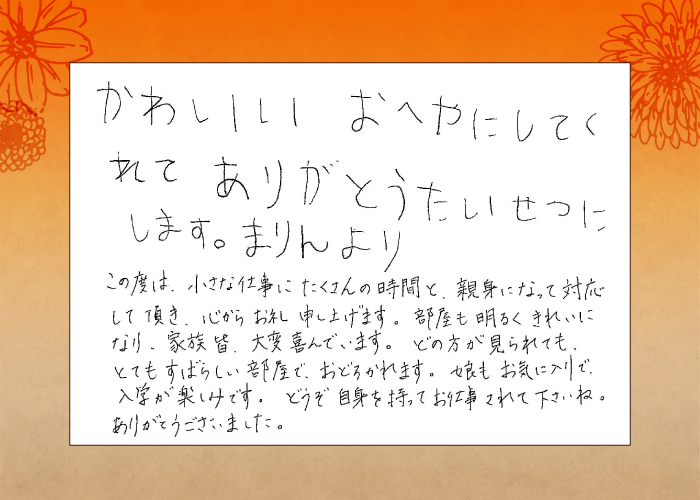 かわいいい おへやにしてく
れて ありがとうたいせつに
します。まりんより
この度は、小さな仕事にたくさんの時間と、親身になって対応
して頂き、心からお礼申し上げます。部屋も明るくきれいに
なり、家族皆、大変喜んでいます。どの方が見られても、
とてもすばらしい部屋で、おどろかれます。娘もお気に入りで、
入学が楽しみです。どうぞ自身を持ってお仕事されて下さいね。
ありがとうございました。